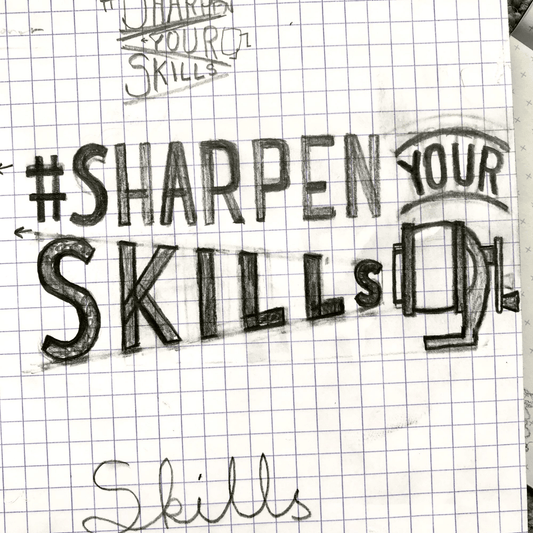 #SHARPEN
YOUR
SKILLS
#SHARPEN YOUR
SKILLS
Skills